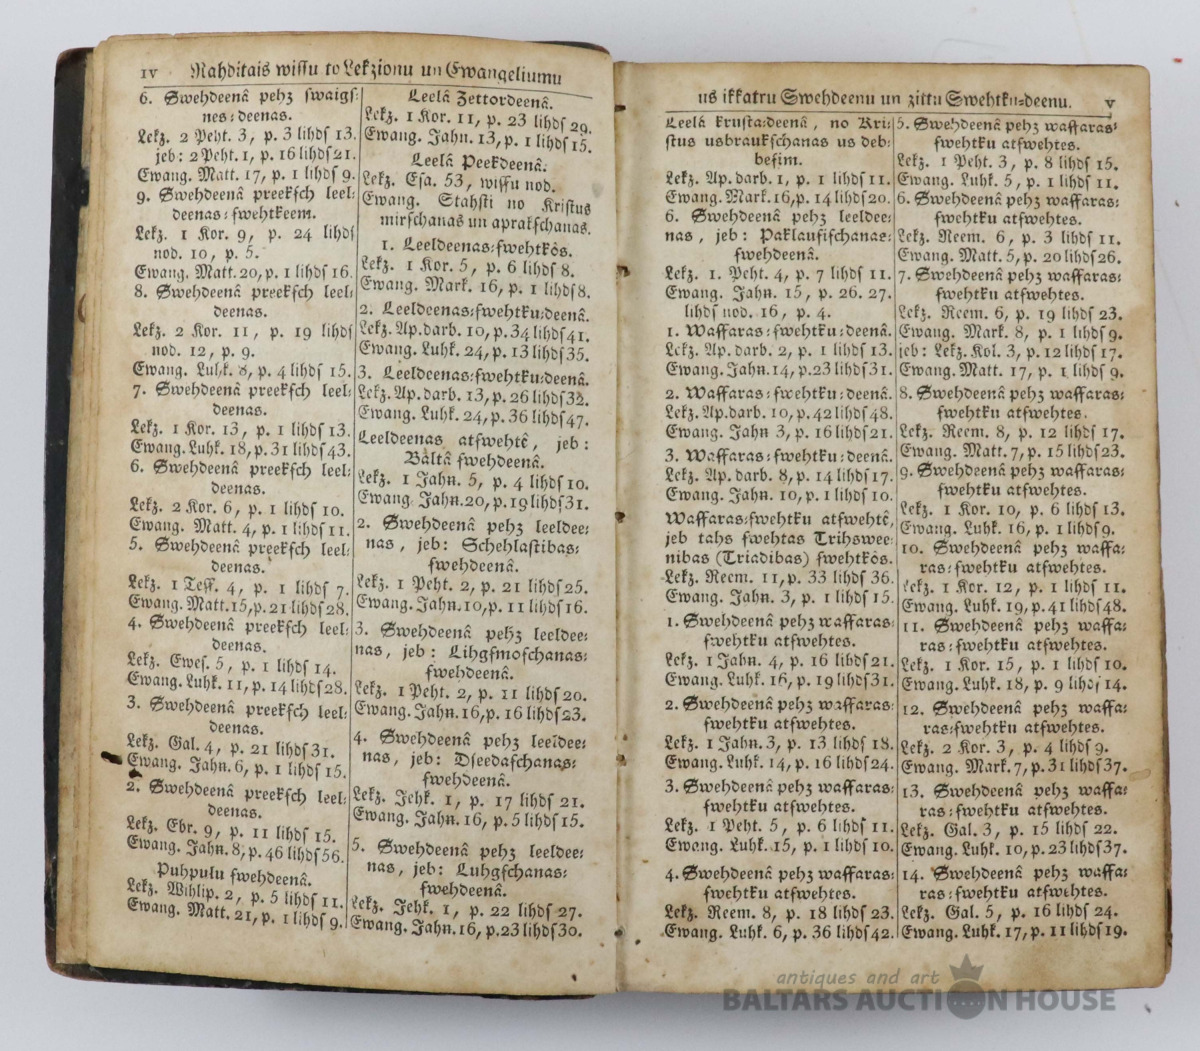 IV Rahditais wissu to Lekzionu un Ewangeliumu
6. Swehdeenâ pehz swaigs⸗
nes⸗deenas.
Lekz. 2 Peht. 3, p. 3 lihds 13.
jeb: 2 Peht. 1, p. 16 lihds 21.
Ewang. Matt. 17, p. 1 lihds 9.
9. Swehdeenâ preeksch leel⸗
deenas⸗swehtkeem.
Lekz. 1 Kor. 9, p. 24 lihds
nod. 10, p. 5.
Ewang. Matt. 20, p. 1 lihds 16.
8. Swehdeenâ preeksch leel⸗
deenas.
Lekz. 2 Kor. 11, p. 19 lihds
nod. 12, p. 9.
Ewang. Luhk. 8, p. 4 lihds 15.
7. Swehdeenâ preeksch leel⸗
deenas.
Lekz. 1 Kor. 13, p. 1 lihds 13.
Ewang. Luhk. 18, p. 31 lihds 43.
6. Swehdeenâ preeksch leel⸗
deenas.
Lekz. 2 Kor. 6, p. 1 lihds 10.
Ewang. Matt. 4, p. 1 lihds 11.
5. Swehdeenâ preeksch leel⸗
deenas.
Lekz. 1 Tess. 4, p. 1 lihds 7.
Ewang. Matt. 15, p. 21 lihds 28.
4. Swehdeenâ preeksch leel⸗
deenas.
Lekz. Ewes. 5, p. 1 lihds 14.
Ewang. Luhk. 11, p. 14 lihds 28.
3. Swehdeenâ preeksch leel⸗
deenas.
Lekz. Gal. 4, p. 21 lihds 31.
Ewang. Jahn. 6, p. 1 lihds 15.
2. Swehdeenâ preeksch leel⸗
deenas.
Lekz. Ebr. 9, p. 11 lihds 15.
Ewang. Jahn. 8, p. 46 lihds 56.
Puhpulu swehdeenâ.
Lekz. Wihlip. 2, p. 5 lihds 11.
Ewang. Matt. 21, p. 1 lihds 9.
Leelâ Zettordeenâ.
Lekz. 1 Kor. 11, p. 23 lihds 29.
Ewang. Jahn. 13, p. 1 lihds 15.
Leelâ Peekdeenâ.
Lekz. Esa. 53, wissu nod.
Ewang. Stahsti no Kristus
mirschanas un aprakschanas.
1. Leeldeenas⸗swehtkôs.
Lekz. 1 Kor. 5, p. 6 lihds 8.
Ewang. Mark. 16, p. 1 lihds 8.
2. Leeldeenas⸗swehtku⸗deenâ.
Lekz. Ap. darb. 10, p. 34 lihds 41.
Ewang. Luhk. 24, p. 13 lihds 35.
3. Leeldeenas⸗swehtku⸗deenâ.
Lekz. Ap. darb. 13, p. 26 lihds 32.
Ewang. Luhk. 24, p. 36 lihds 47.
Leeldeenas atswehtê, jeb:
Baltâ swehdeenâ.
Lekz. 1 Jahn. 5, p. 4 lihds 10.
Ewang. Jahn. 20, p. 19 lihds 31.
2. Swehdeenâ pehz leeldee⸗
nas, jeb: Schehlastibas⸗
swehdeenâ.
Lekz. 1 Peht. 2, p. 21 lihds 25.
Ewang. Jahn. 10, p. 11 lihds 16.
3. Swehdeenâ pehz leeldee⸗
nas, jeb: Lihgsmoschanas⸗
swehdeenâ.
Lekz. 1 Peht. 2, p. 11 lihds 20.
Ewang. Jahn. 16, p. 16 lihds 23.
4. Swehdeenâ pehz leeldee⸗
nas, jeb: Dseedaschanas⸗
swehdeenâ.
Lekz. Jehk. 1, p. 17 lihds 21.
Ewang. Jahn. 16, p. 5 lihds 15.
5. Swehdeenâ pehz leeldee⸗
nas, jeb: Luhgschanas⸗
swehdeenâ.
Lekz. Jehk. 1, p. 22 lihds 27.
Ewang. Jahn. 16, p. 23 lihds 30.
us ikkatru Swehdeenu un zittu Swehtku⸗deenu. V
Leelâ krusta⸗deenâ, no Kri⸗
stus usbraukschanas us deb⸗
besim.
Lekz. Ap. darb. 1, p. 1 lihds 11.
Ewang. Mark. 16, p. 14 lihds 20.
6. Swehdeenâ pehz leeldee⸗
nas, jeb: Paklausischanas⸗
swehdeenâ.
Lekz. 1. Peht. 4, p. 7 lihds 11.
Ewang. Jahn. 15, p. 26. 27.
lihds nod. 16, p. 4.
1. Wassaras⸗swehtku⸗deenâ.
Lekz. Ap. darb. 2, p. 1 lihds 13.
Ewang. Jahn. 14, p. 23 lihds 31.
2. Wassaras⸗swehtku⸗deenâ.
Lekz. Ap. darb. 10, p. 42 lihds 48.
Ewang. Jahn 3, p. 16 lihds 21.
3. Wassaras⸗swehtku⸗deenâ.
Lekz. Ap. darb. 8, p. 14 lihds 17.
Ewang. Jahn. 10, p. 1 lihds 10.
Wassaras⸗swehtku atswehtê,
jeb tahs swehtas Trihswee⸗
nibas (Triadibas) swehtkôs.
Lekz. Reem. 11, p. 33 lihds 36.
Ewang. Jahn. 3, p. 1 lihds 15.
1. Swehdeenâ pehz wassaras⸗
swehtku atswehtes.
Lekz. 1 Jahn. 4, p. 16 lihds 21.
Ewang. Luhk. 16, p. 19 lihds 31.
2. Swehdeenâ pehz wassaras⸗
swehtku atswehtes.
Lekz. 1 Jahn. 3, p. 13 lihds 18.
Ewang. Luhk. 14, p. 16 lihds 24.
3. Swehdeenâ pehz wassaras⸗
swehtku atswehtes.
Lekz. 1 Peht. 5, p. 6 lihds 11.
Ewang. Luhk. 15, p. 1 lihds 10.
4. Swehdeenâ pehz wassaras⸗
swehtku atswehtes.
Lekz. Reem. 8, p. 18 lihds 23.
Ewang. Luhk. 6, p. 36 lihds 42.
5. Swehdeenâ pehz wassaras⸗
swehtku atswehtes.
Lekz. 1 Peht. 3, p. 8 lihds 15.
Ewang. Luhk. 5, p. 1 lihds 11.
6. Swehdeenâ pehz wassaras⸗
swehtku atswehtes.
Lekz. Reem. 6, p. 3 lihds 11.
Ewang. Matt. 5, p. 20 lihds 26.
7. Swehdeenâ pehz wassaras⸗
swehtku atswehtes.
Lekz. Reem. 6, p. 19 lihds 23.
Ewang. Mark. 8, p. 1 lihds 9.
jeb: Lekz. Kol. 3, p. 12 lihds 17.
Ewang. Matt. 17, p. 1 lihds 9.
8. Swehdeenâ pehz wassaras⸗
swehtku atswehtes.
Lekz. Reem. 8, p. 12 lihds 17.
Ewang. Matt. 7, p. 15 lihds 23.
9. Swehdeenâ pehz wassaras⸗
swehtku atswehtes.
Lekz. 1 Kor. 10, p. 6 lihds 13.
Ewang. Luhk. 16, p. 1 lihds 9.
10. Swehdeenâ pehz wassa⸗
ras⸗swehtku atswehtes.
Lekz. 1 Kor. 12, p. 1 lihds 11.
Ewang. Luhk. 19, p. 41 lihds 48.
11. Swehdeenâ pehz wassa⸗
ras⸗swehtku atswehtes.
Lekz. 1 Kor. 15, p. 1 lihds 10.
Ewang. Luhk. 18, p. 9 lihds 14.
12. Swehdeenâ pehz wassa⸗
ras⸗swehtku atswehtes.
Lekz. 2 Kor. 3, p. 4 lihds 9.
Ewang. Mark. 7, p. 31 lihds 37.
13. Swehdeenâ pehz wassa⸗
ras⸗swehtku atswehtes.
Lekz. Gal. 3, p. 15 lihds 22.
Ewang. Luhk. 10, p. 23 lihds 37.
14. Swehdeenâ pehz wassa⸗
ras⸗swehtku atswehtes.
Lekz. Gal. 5, p. 16 lihds 24.
Ewang. Luhk. 17, p. 11 lihds 19.
antiques and art
BALTARS AUCTION HOUSE